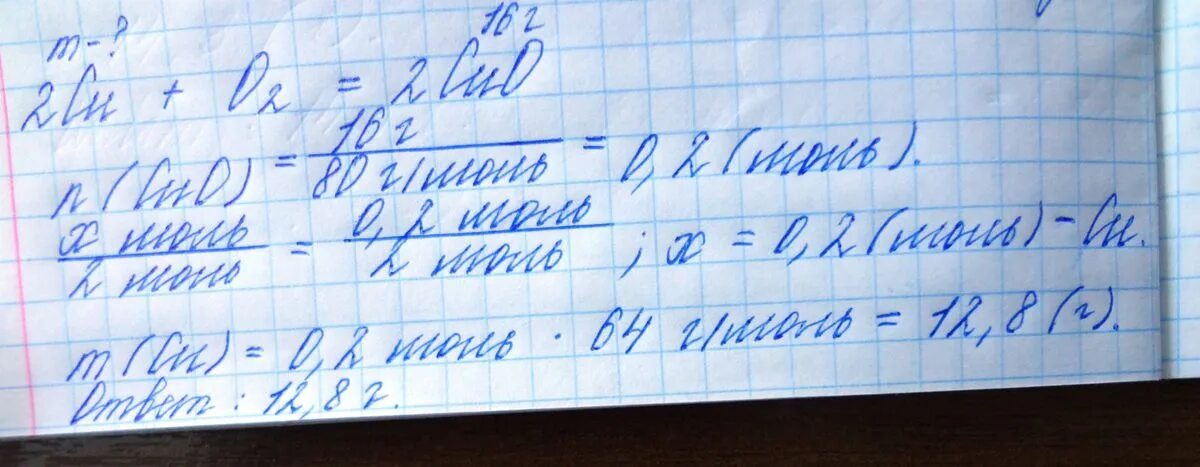 m-?
16 г
2Cu + O₂ = 2CuO
n(CuO) = 16 г / 80 г/моль = 0,2 (моль).
x моль / 2 моль = 0,2 моль / 2 моль ; x = 0,2 (моль) - Cu.
m(Cu) = 0,2 моль · 64 г/моль = 12,8 (г).
Ответ: 12,8 г.